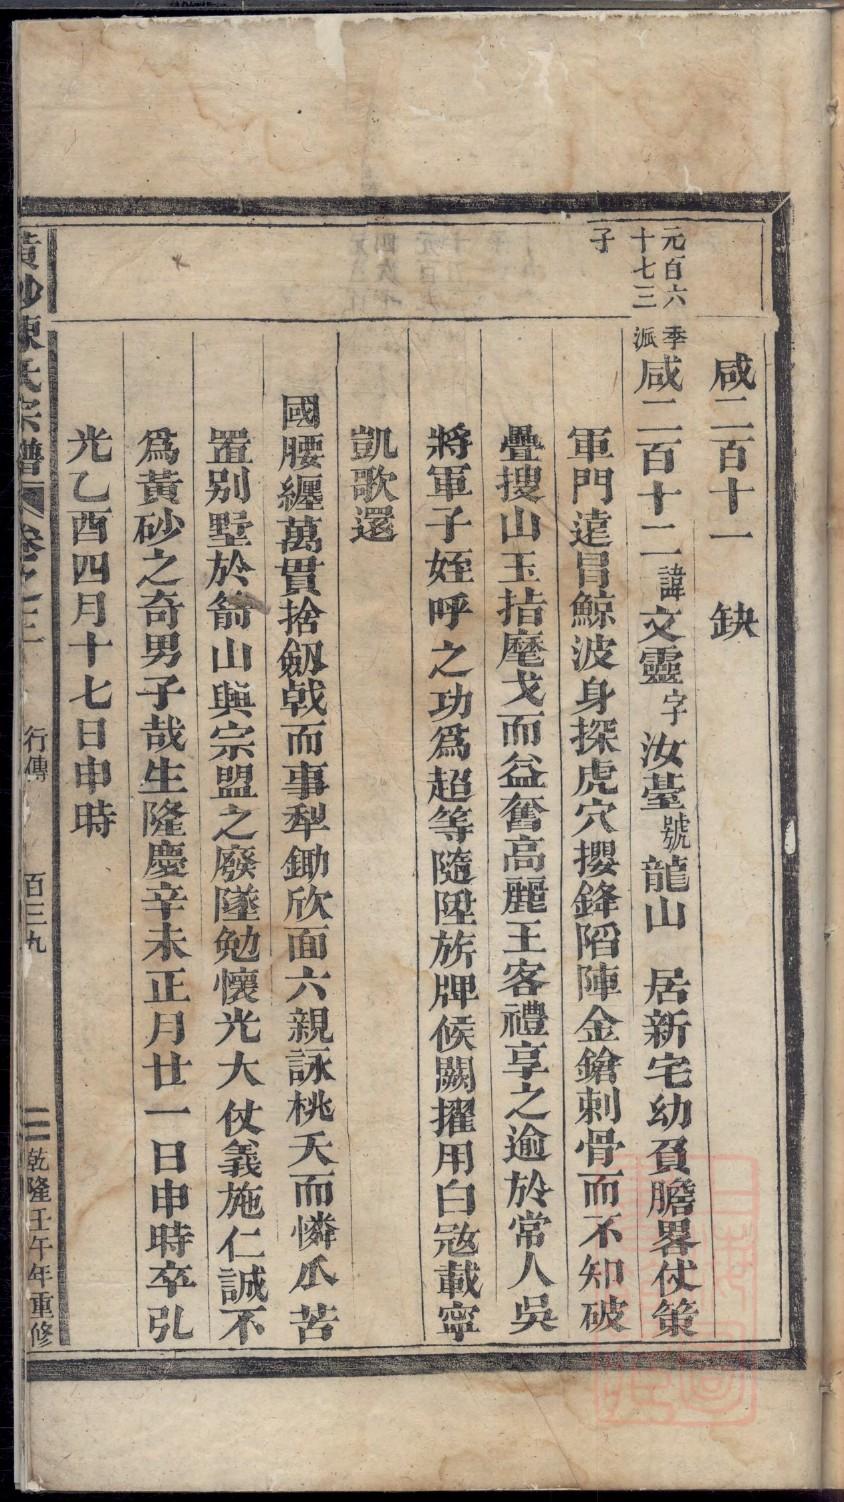 咸二百十一　缺
元百六十七三子
季派咸二百十二諱文靈字汝臺號龍山　居新宅幼負膽畧仗策
軍門遠冒鯨波身探虎穴攖鋒陷陣金鎗刺骨而不知破
疊搜山玉指麾戈而益奮高麗王客禮享之逾於常人吳
將軍子姪呼之功爲超等隨陞旂牌候闕擢用白宼載寧
凱歌還
國腰纏萬貫捨劔戟而事犁鋤欣面六親詠桃夭而憐瓜苦
置别墅於箭山與宗盟之廢墜勉懷光大仗義施仁誠不
爲黃砂之奇男子哉生隆慶辛未正月廿一日申時卒弘
光乙酉四月十七日申時
黃砂陳氏宗譜　卷之三　行傳　百三九　乾隆壬午年重修